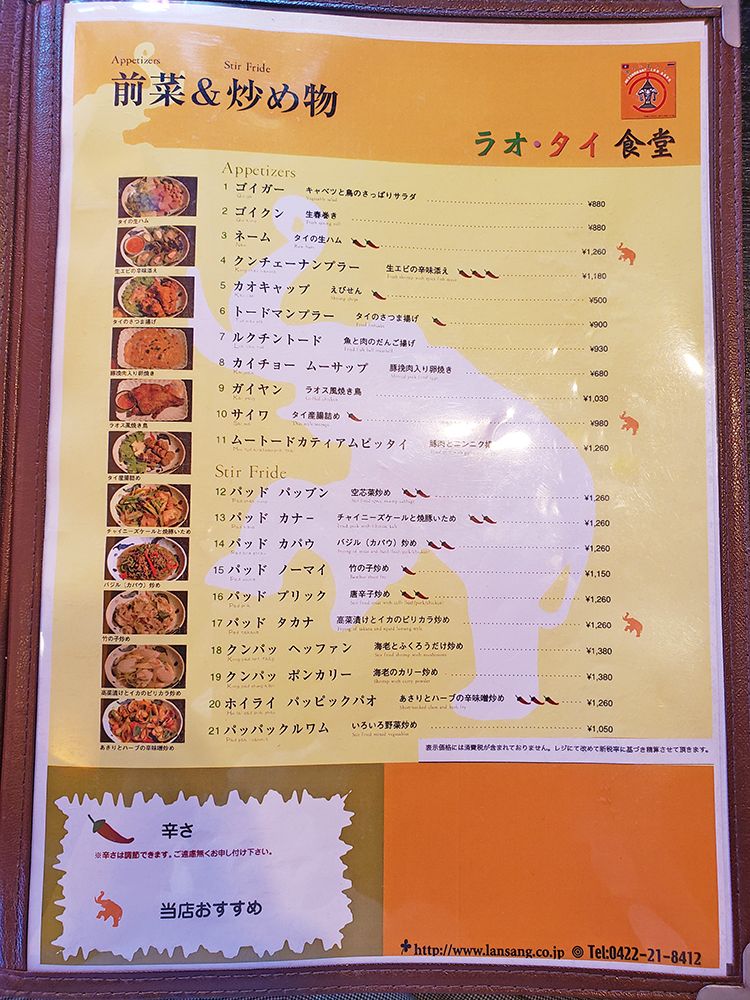 Appetizers
Stir Fride
前菜&炒め物
ラオ・タイ 食堂
Appetizers
1 ゴイガー キャベツと鳥のさっぱりサラダ ¥880
Vegetable salad
2 ゴイクン 生春巻き ¥880
Fresh spring roll
3 ネーム タイの生ハム ¥1,260
4 クンチェーナンプラー 生エビの辛味添え ¥1,180
5 カオキャップ えびせん ¥500
Shrimp chips
6 トードマンプラー タイのさつま揚げ ¥900
7 ルクチントード 魚と肉のだんご揚げ ¥930
8 カイチョー ムーサップ 豚挽肉入り卵焼き ¥680
9 ガイヤン ラオス風焼き鳥 ¥1,030
10 サイワ タイ産腸詰め ¥980
11 ムートードカティアムピッタイ 豚肉とニンニク ¥1,260
Stir Fride
12 パッド パップン 空芯菜炒め ¥1,260
13 パッド カナー チャイニーズケールと焼豚いため ¥1,260
14 パッド カパウ バジル（カパウ）炒め ¥1,260
15 パッド ノーマイ 竹の子炒め ¥1,150
16 パッド プリック 唐辛子炒め ¥1,260
17 パッド タカナ 高菜漬けとイカのピリカラ炒め ¥1,260
18 クンパッ ヘッファン 海老とふくろうだけ炒め ¥1,380
19 クンパッ ポンカリー 海老のカリー炒め ¥1,380
20 ホイライ パッピックパオ あさりとハーブの辛味噌炒め ¥1,260
21 パッパックルワム いろいろ野菜炒め ¥1,050
タイの生ハム
生エビの辛味添え
タイのさつま揚げ
豚挽肉入り卵焼き
ラオス風焼き鳥
タイ産腸詰め
チャイニーズケールと焼豚いため
バジル（カパウ）炒め
竹の子炒め
高菜漬けとイカのピリカラ炒め
あさりとハーブの辛味噌炒め
表示価格には消費税が含まれておりません。レジにて改めて新税率に基づき精算させて頂きます。
辛さ
※辛さは調節できます。ご遠慮無くお申し付け下さい。
当店おすすめ
http://www.lansang.co.jp ◎ Tel:0422-21-8412